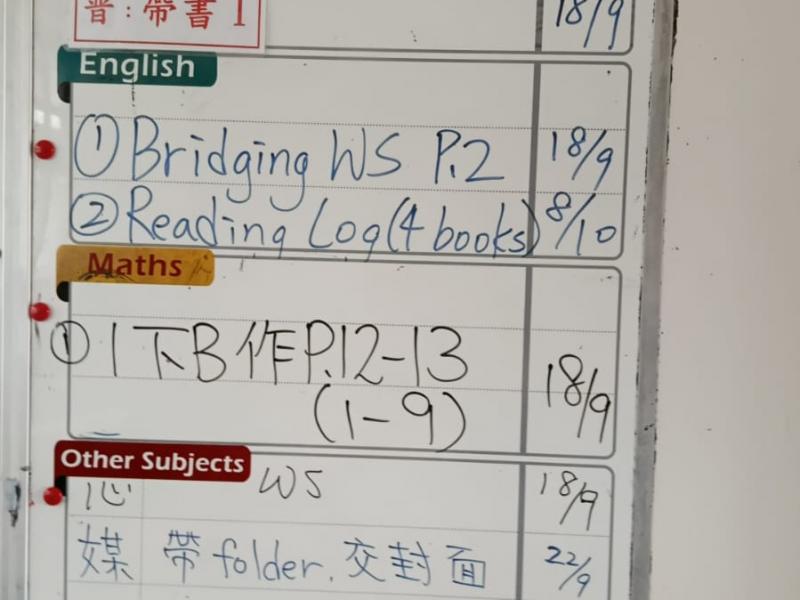 普:帶書1
18/9
English
① Bridging WS P.2 18/9
② Reading Log (4 books) 8/10
Maths
① 1下B作P.12-13
(1-9) 18/9
Other Subjects
心 WS 18/9
媒 帶folder,交封面 22/9